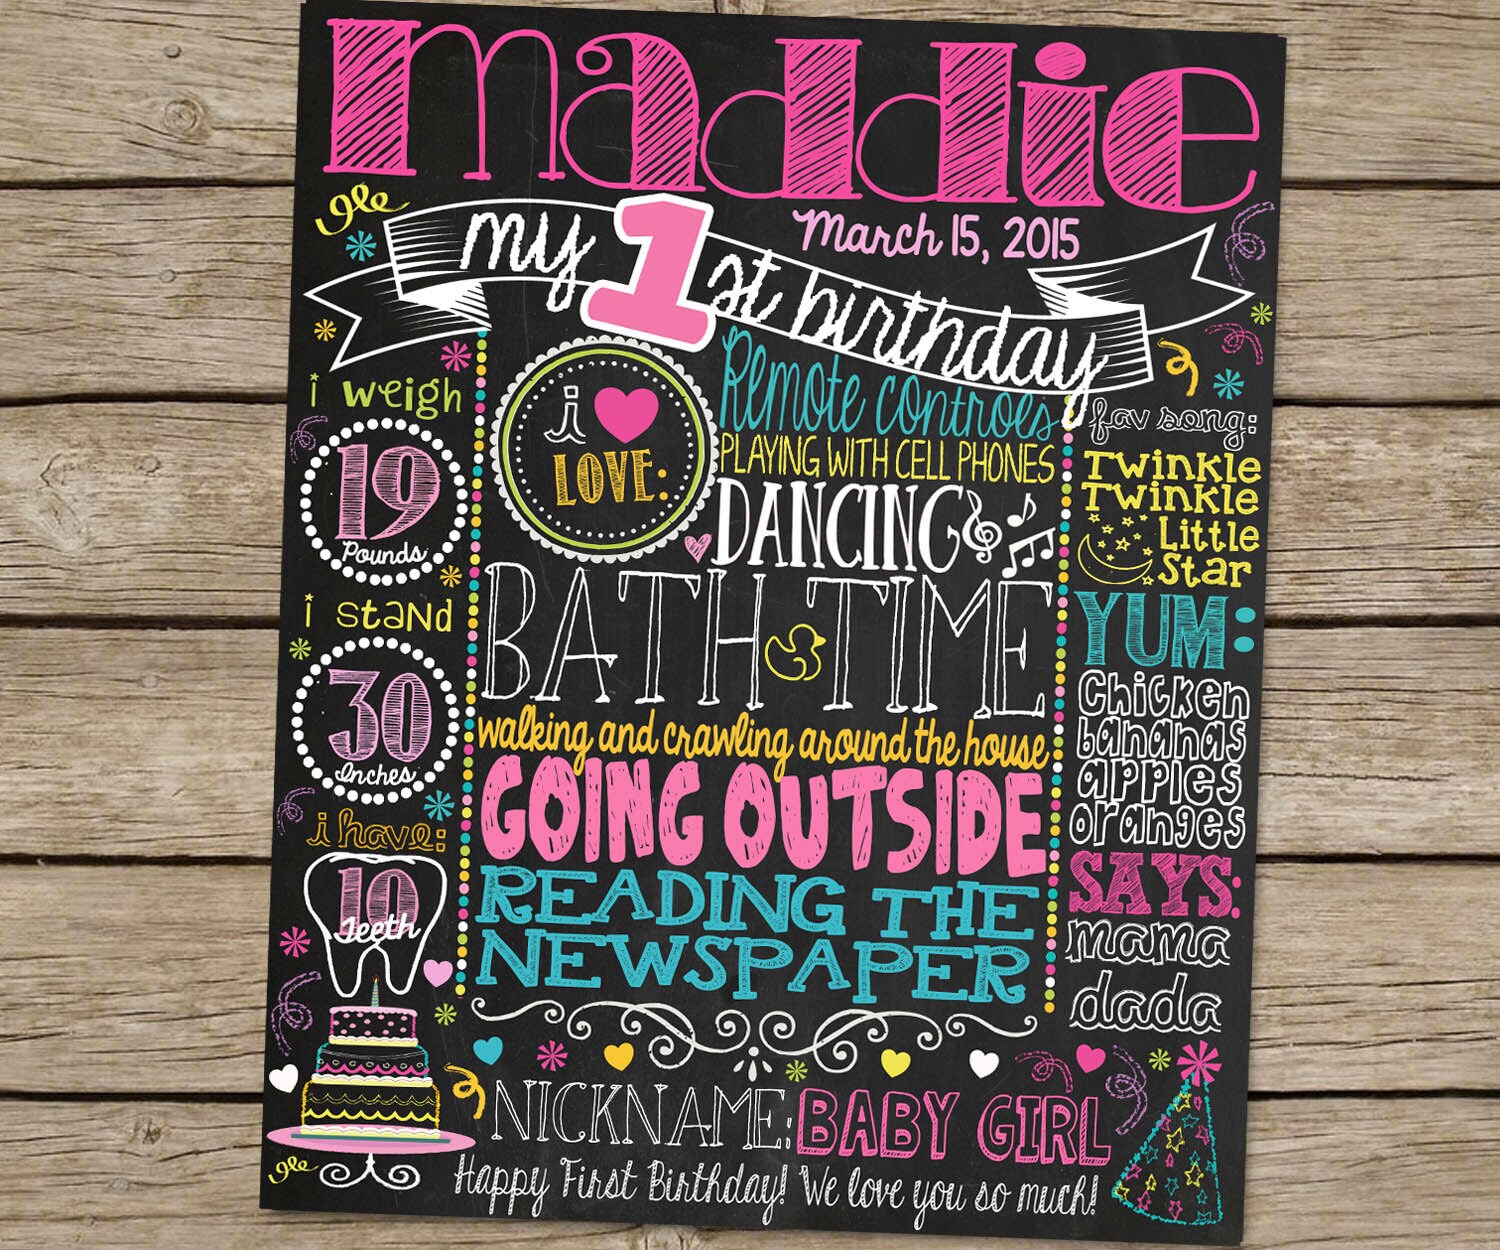 maddie
March 15, 2015
my 1st birthday
i weigh
19
Pounds
i stand
30
Inches
i have:
10
Teeth
i
LOVE:
Remote controls
PLAYING WITH CELL PHONES
DANCING
BATH TIME
walking and crawling around the house
GOING OUTSIDE
READING THE
NEWSPAPER
fav song:
Twinkle
Twinkle
Little
Star
YUM:
Chicken
bananas
apples
oranges
SAYS:
mama
dada
NICKNAME: BABY GIRL
Happy First Birthday! We love you so much!